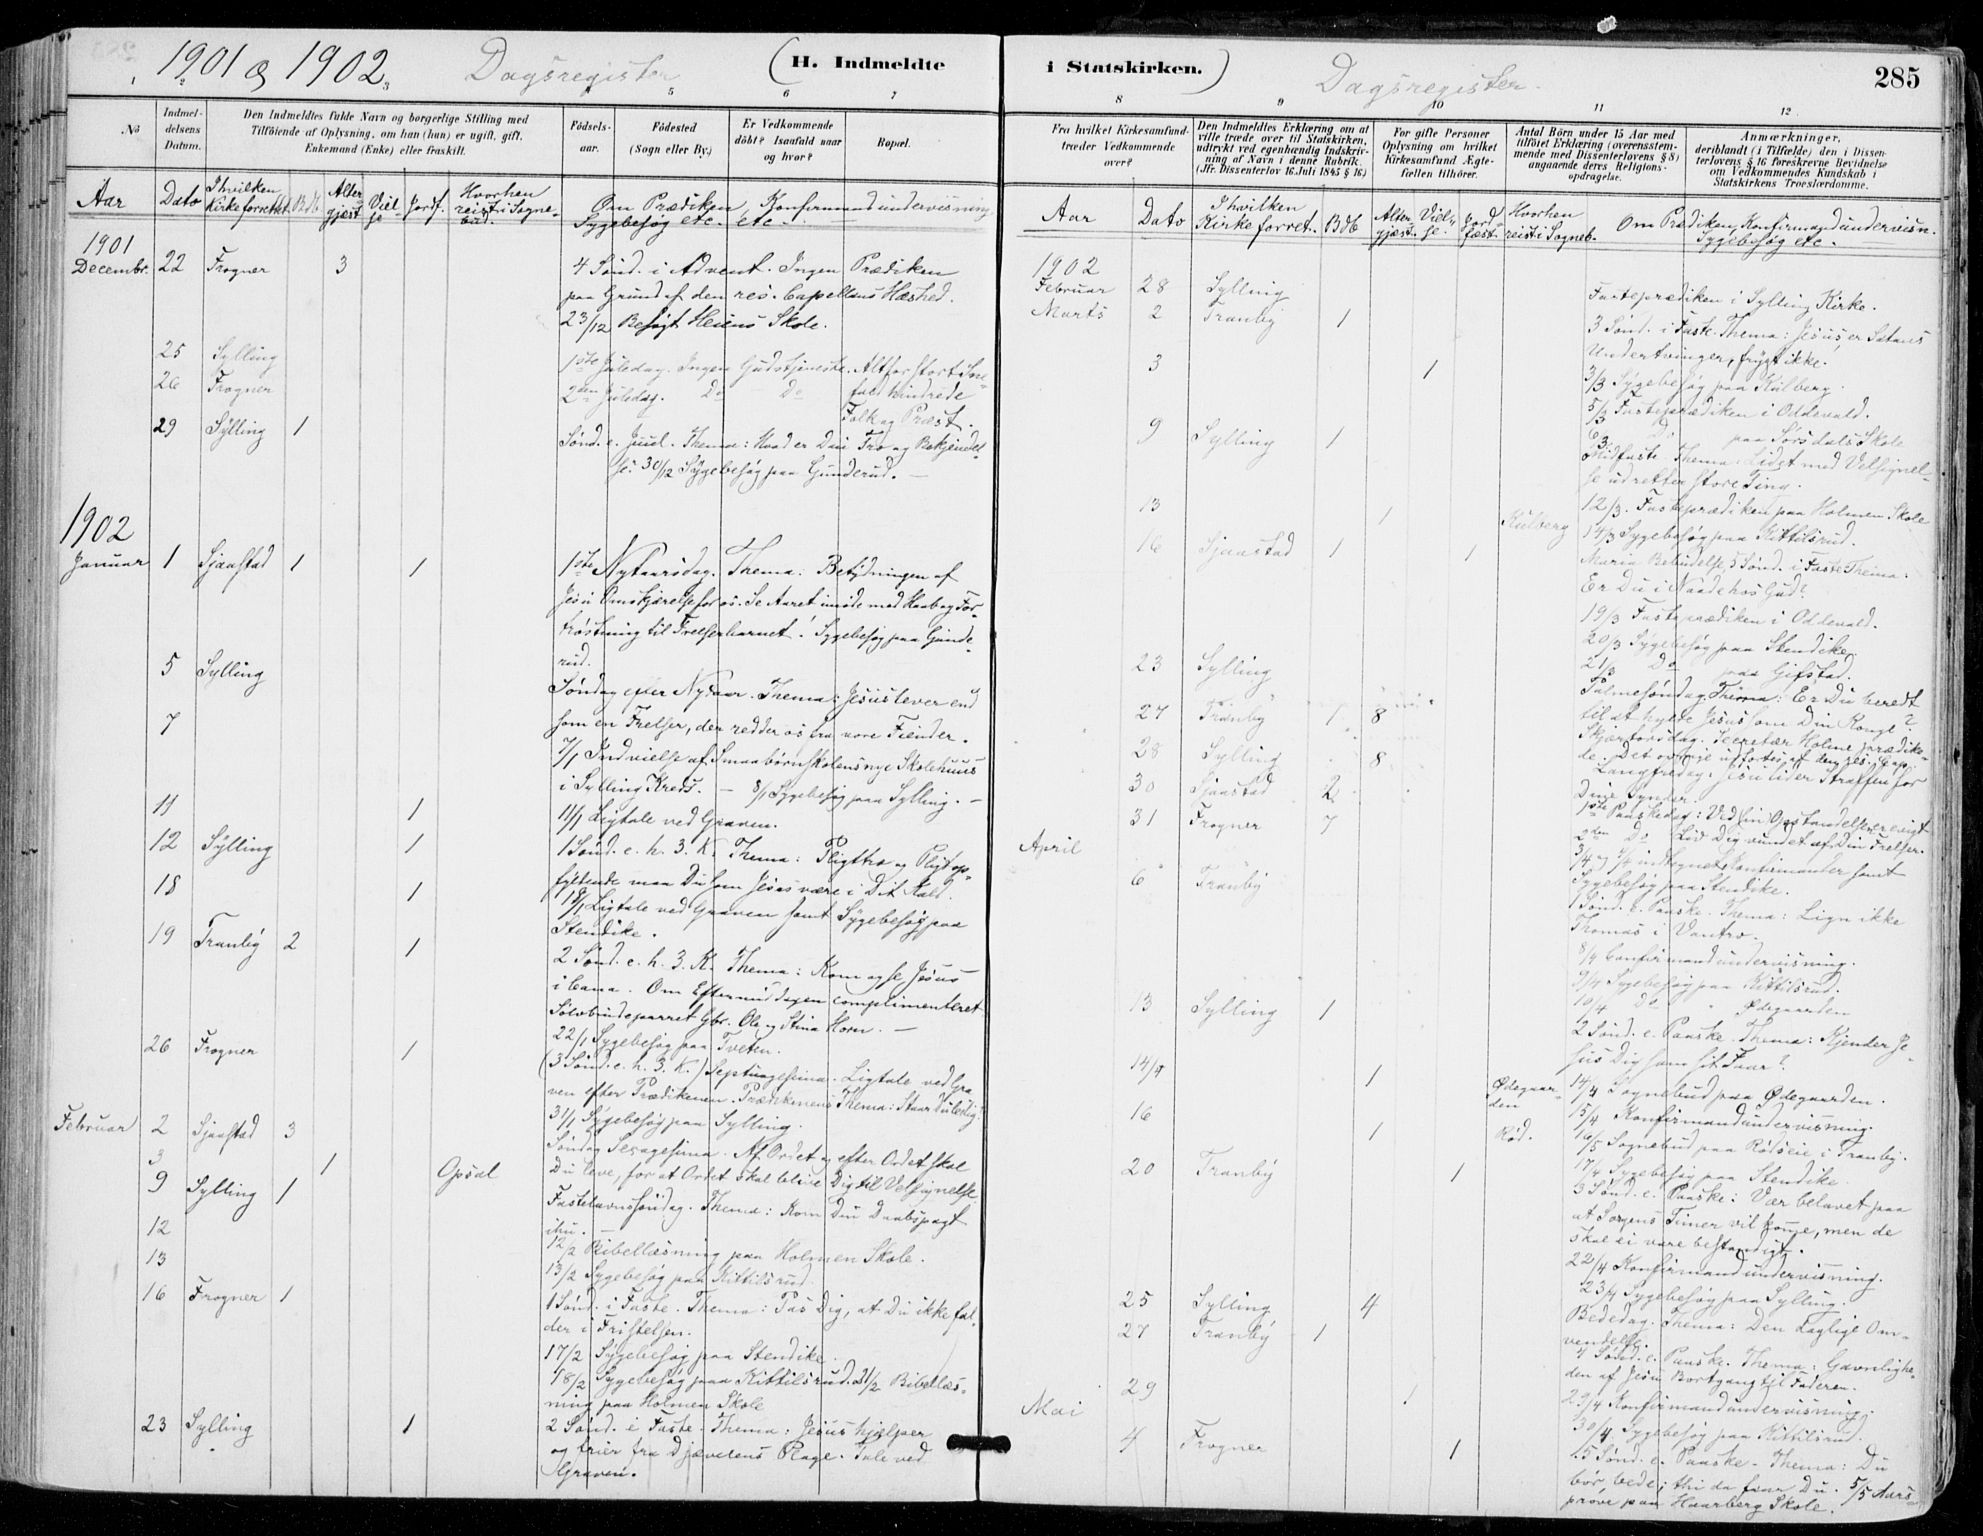 1901 og 1902
Dagsregister
(H. Indmeldte
1 3 5 6 7
No
Indmel-
delsens
Datum.
Den Indmeldtes fulde Navn og borgerlige Stilling med
Tilföiende af Oplysning, om han (hun) er ugift, gift,
Enkemand (Enke) eller fraskilt.
Födsels-
aar.
Födested
(Sogn eller By.)
Er Vedkommende
döbt? Isaafald naar
og hvor?
Bopæl.
Aar
Dato
I hvilken
Kirke forrettet
Alter
gjest
Viel-
se
Jordf.
Hvorhen
reist i Sogne-
bud.
Om Prædiken, Konfirmandundervisning
Sygebesøg etc. etc
1901
Decembr. 22 Frogner 3 4 Sønd. i Advent. Ingen Prædiken
paa Grund af den res. Capellans Hæshed.
23/12 Besøgt Heiens Skole.
25 Sylling 1ste Juledag. Ingen Gudstjeneste. Altfor stort Sne-
26 Frogner 2den Juledag. Do Do fald hindrede
Folk og Præst.
29 Sylling 1 Sønd. e. Juul. Thema: Hvad er Din Tro og Bekjendel-
se. 30/12 Sygebesøg paa Gunderud. —
1902
Januar 1 Sjaastad 1 1 1ste Nytaarsdag. Thema: Betydningen af
Jesu Omskjærelse for os. Se Aaret imøde med Haab og For-
trøstning til Frelserbarnet! Sygebesøg paa Gunde-
rud.
5 Sylling Søndag efter Nytaar. Thema: Jesus lever end
som en Frelser, der redder os fra vore Fiender.
7 7/1 Indvielse af Smaabørnskolens nye Skolehuus
i Sylling Kreds. — 8/1 Sygebesøg paa Sylling. —
11 1 11/1 Ligtale ved Graven.
12 Sylling 1 1 Sønd. e. h. 3. K. Thema: Pligttro og Pligtop-
fyldende maa Du som Jesus være i Dit Kald.
18 1 18/1 Ligtale ved Graven samt Sygebesøg paa
Stendike.
19 Tranby 2 1 2 Sønd. e. h. 3. K. Thema: Kom og se Jesus
i Cana. Om Eftermiddagen complimenteret
Sølvbrudeparret Gbr. Ole og Stina Horn. —
22/1 Sygebesøg paa Tveten.
26 Frogner 1 (3 Sønd. e. h. 3. K.) Septuagesima. Ligtale ved Gra-
ven efter Prædikenen. Prædikenens Thema: Staar Du ledig?
31/1 Sygebesøg paa Sylling.
Februar 2 Sjaastad 3 Søndag Sexagesima. Af Ordet og efter Ordet skal
3 1 Opsal Du leve, for at Ordet skal blive Dig til Velsignelse
9 Sylling 1 Fastelavnssøndag. Thema: Kom Din Daabspagt
ihu. —
12 12/2 Bibellæsning paa Holmen Skole.
13 13/2 Sygebesøg paa Kittilsrud.
16 Frogner 1 1 Sønd. i Faste. Thema: Pas Dig, at Du ikke fal-
der i Fristelsen.
17/2 Sygebesøg paa Stendike.
18/2 Sygebesøg paa Kittilsrud. 21/2 Bibellæs-
ning paa Holmen Skole
23 Sylling 1 2 Sønd. i Faste. Thema: Jesus hjælper
og frier fra Djævelens Plage. Tale ved
Graven.
i Statskirken.)
Dagsregister
285
8 9 10 11 12
Fra hvilket Kirkesamfund
træder Vedkommende
over?
Den Indmeldtes Erklæring om at
ville træde over til Statskirken,
udtrykt ved egenhændig Indskriv-
ning af Navn i denne Rubrik.
(Jfr. Dissenterlov 16. Juli 1845 § 16)
For gifte Personer
Oplysning om hvilket
Kirkesamfund Ægte-
fællen tilhörer.
Antal Börn under 15 Aar med
tilföiet Erklæring (overensstem-
mende med Dissenterlovens § 8)
angaaende deres Religions-
opdragelse.
Anmærkninger,
deriblandt (i Tilfælde) den i Dissen-
terlovens § 16 foreskrevne Bevidnelse
om Vedkommendes Kundskab i
Statskirkens Troeslærdomme.
Aar
Dato
I hvilken
Kirke forret.
Alter
gjæst.
Viel-
se.
Jord
fæst.
Hvorhen
reist i Sogneb.
Om Prædiken, Konfirmandundervisn.
Sygebesøg etc.
1902
Februar 28 Sylling Fasteprædiken i Sylling Kirke.
Marts 2 Tranby 1 3 Sønd. i Faste. Thema: Jesus er Satans
Undertvinger, frygt ikke!
3 1 3/3 Sygebesøg paa Kulberg.
5/3 Fasteprædiken i Oddevald.
9 Sylling 1 6/3 Do paa Sørsdals Skole
Midfaste Thema: Lidet med Velsignel-
se udretter store Ting.
13 1 Kulberg 12/3. Fasteprædiken paa Holmen Skole
14/3 Sygebesøg paa Kittilsrud.
16 Sjaastad 1 1 Maria Bebudelse, 5 Sønd. i Faste Thema:
Er Du i Naade hos Gud?
19/3 Fasteprædiken i Oddevald.
20/3 Sygebesøg paa Stendike.
21/3 Do paa Gifstad.
23 Sylling Palmesøndag. Thema: Er Du beredt
til at hylde Jesus som Din Konge?
27 Tranby 1 8 Skjærtorsdag. Secretær Holme prædike-
de. Det øvrige udførtes af den res. Cap.
28 Sylling 8 Langfredag. Jesu lider Straffen for
Dine Synder.
30 Sjaastad 2 1ste Paaskedag: Ved sin Opstandelse er evigt
31 Frogner 7 2den Do Liv Dig vundet af Din Frelser.
April
Konfirmander samt
Sygebesøg paa Stendike.
6 Tranby 1 Sønd. e. Paaske. Thema: Lign ikke
Thomas i Vantro.
8/4 Confirmandundervisning.
9/4 Sygebesøg paa Kittilsrud.
10/4 Do " Ødegaarden
13 Sylling 1 2 Sønd. e. Paaske. Thema: Kjender Je-
sus Dig som sit Faar?
14/4 1 Ødegaar-
den 14/4 Sognebud paa Ødegaarden.
15/4 Konfirmandundervisning.
16 1 Rød. 16/5 Sognebud paa Rødseie i Tranby.
17/4 Sygebesøg paa Stendike.
20 Tranby 1 3 Sønd. e. Paaske: Vær belavet paa
at Sorgens Timer vil komme, men de
skal ei vare bestandigt.
22/4 Konfirmandundervisning.
23/4 Sygebesøg paa Sylling.
25 Sylling 4 Bededag. Thema: Den daglige Om-
vendelse.
27 Tranby 1 4 Sønd. e. Paaske. Thema: Gavnlighe-
den af Jesu Bortgang til Faderen.
29 1 29/4 Konfirmandundervisning.
30/4. Sygebesøg paa Kittilsrud.
Mai 4 Frogner 1 5 Sønd. e. Paaske. Thema: Du
bør bede; thi da faar Du. 5/5 Aars-
prøve paa Haarberg Skole.